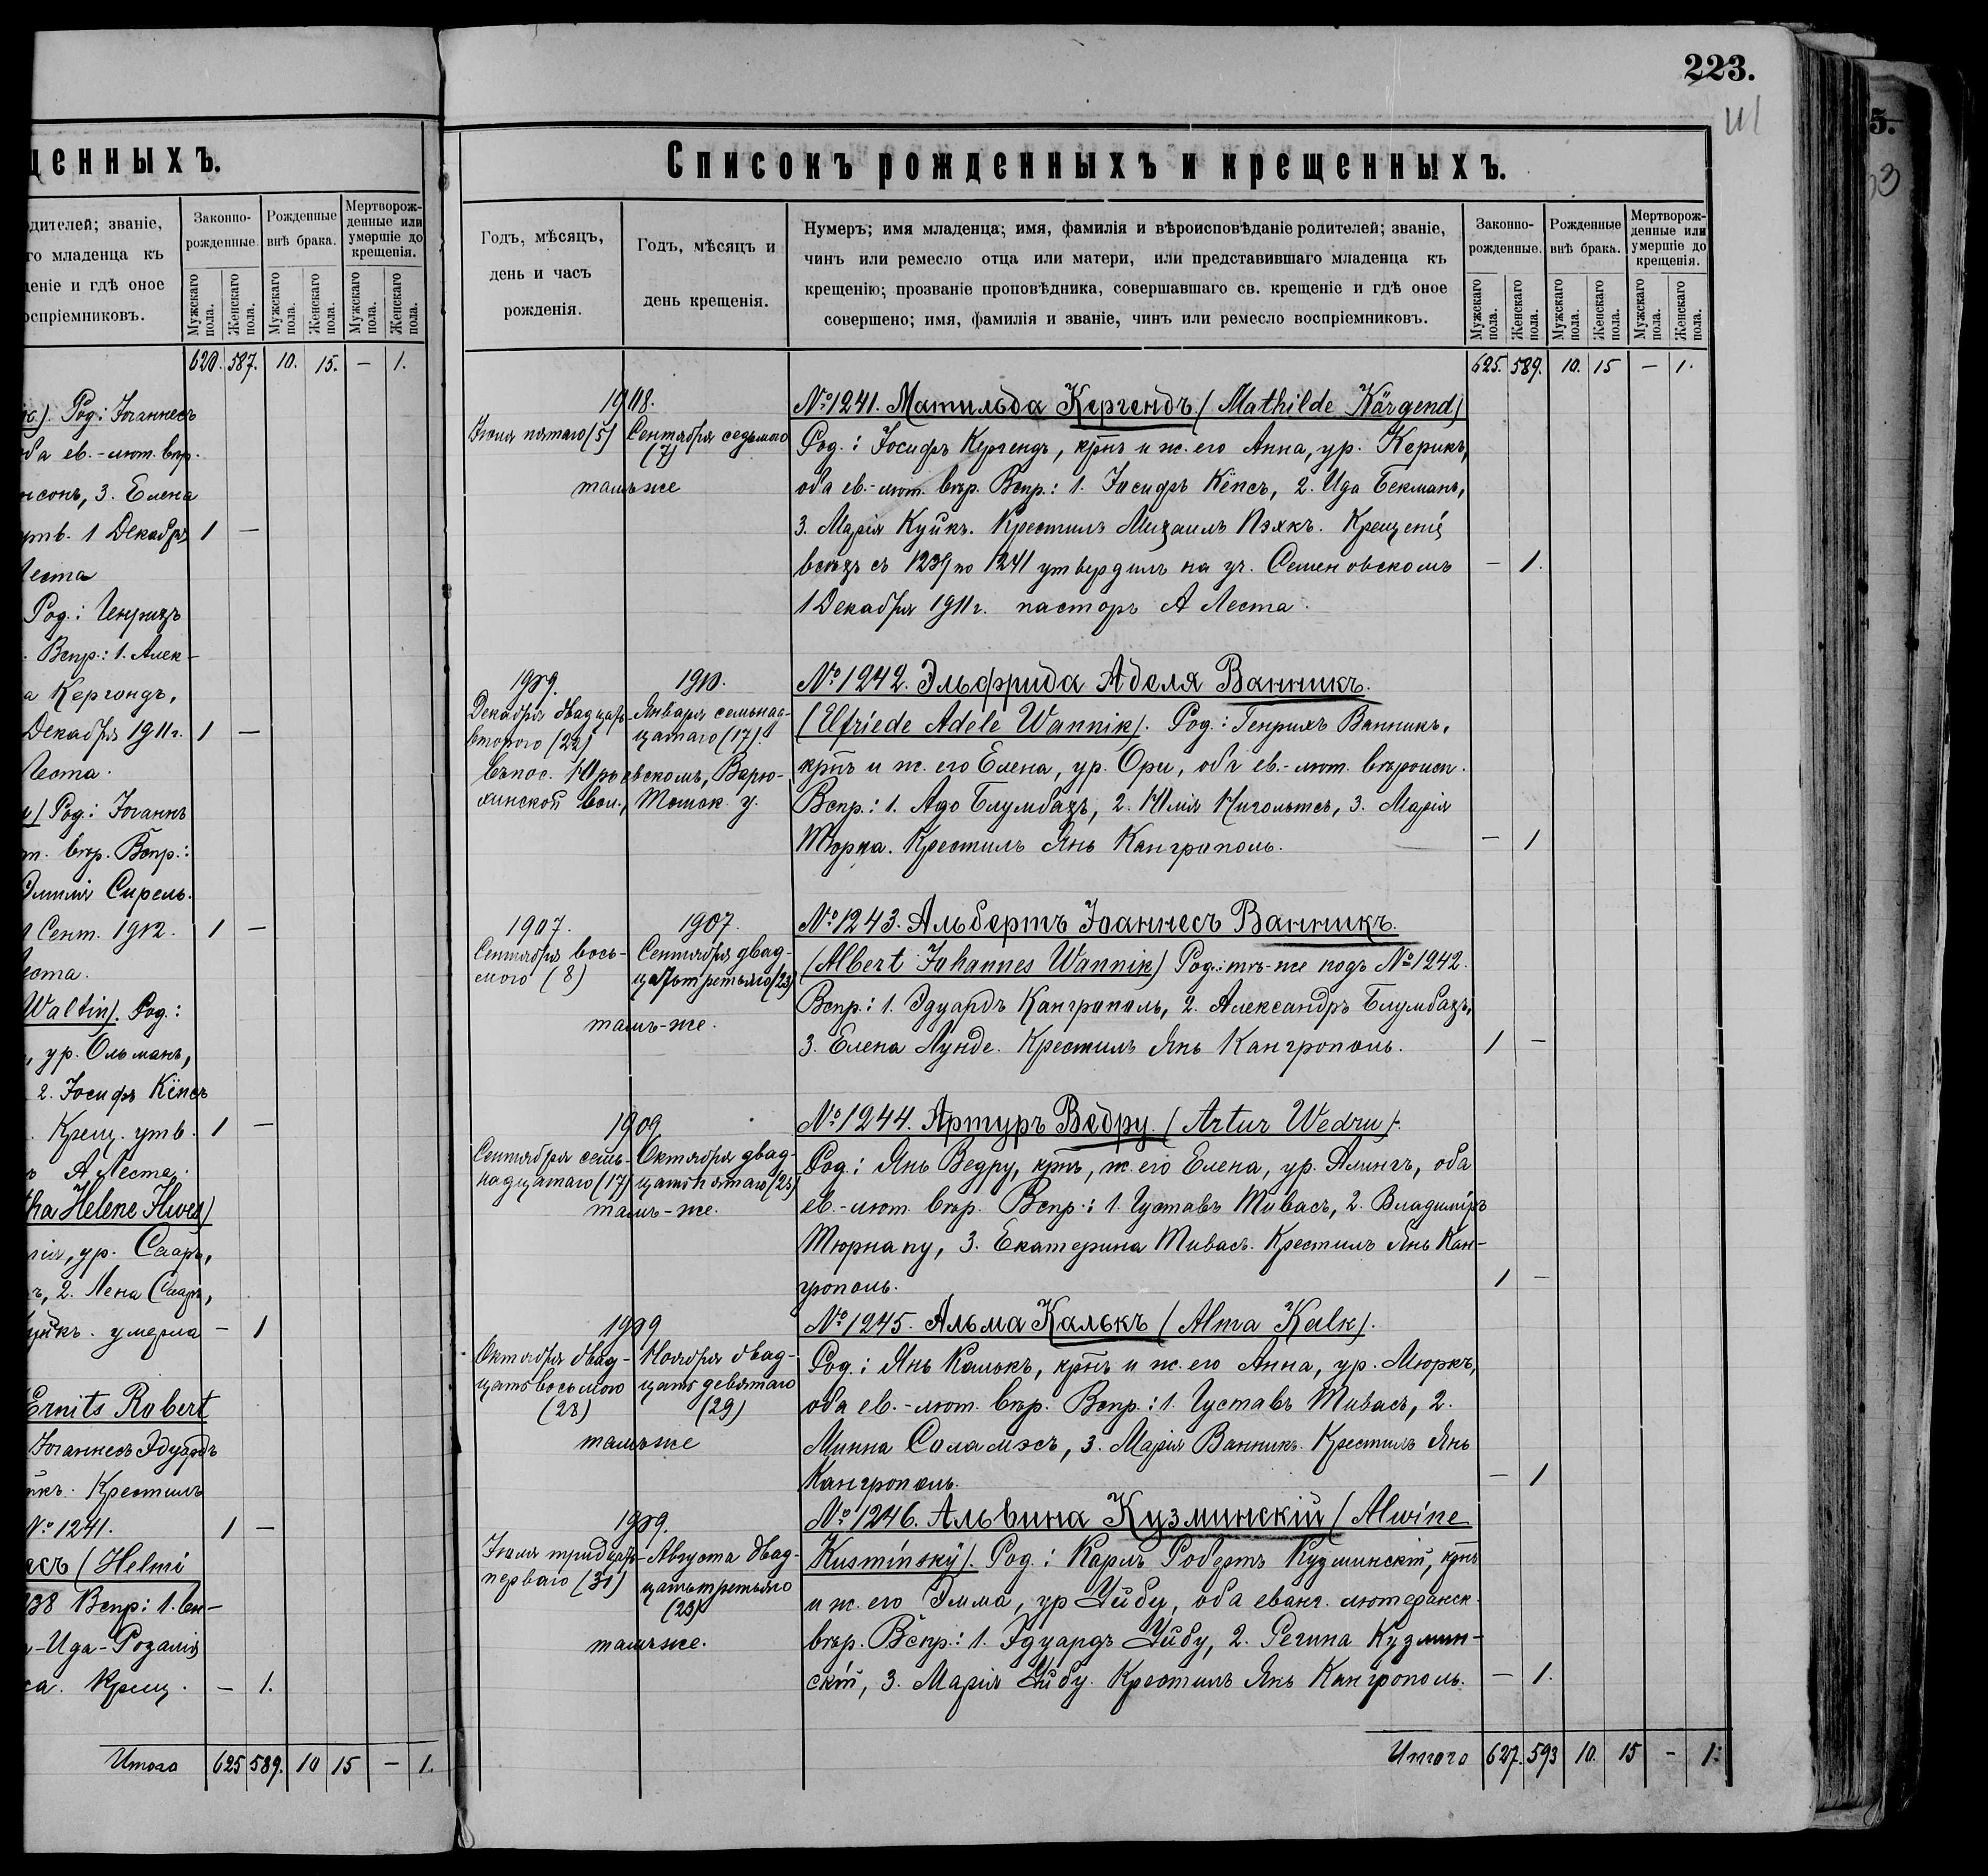 денныхъ.
одителей; званіе,
го младенца къ
деніе и гдѣ оное
оспріемниковъ.
Законно-
рожденные.
Рожденные
внѣ брака.
Мертворож-
денные или
умершіе до
крещенія.
Мужскаго пола.
Женскаго пола.
Мужскаго пола.
Женскаго пола.
Мужскаго пола.
Женскаго пола.
620. 587. 10. 15. — 1.
Род: Іоганнесъ
оба ев.-лют. вѣр.
нсонъ, 3. Елена
утв. 1 Декабря 1 —
Леста
Род.: Генрихъ
Вспр.: 1. Алек-
а Кергондъ,
Декабря 1911 г. 1 —
Леста.
Род: Іоганнъ
т. вѣр. Вспр.:
Эмилія Сирель.
1 Сент. 1912. 1 —
еста.
Waltin). Род.:
, ур. Ольманъ,
2. Іосифъ Кёпсъ
Крещ. утв. 1 —
А Леста.
tha Helene Ilwes)
рія, ур. Сааръ,
ъ, 2. Лена Сааръ,
уйкъ. умерла — 1
Ernits Robert
Іоганнесъ Эдуардъ
икъ. Крестилъ
№ 1241. 1 —
асъ (Helmi
38 Вспр: 1. Ен-
-Ида-Розалія
са. Крещ. — 1.
Итого 625 589. 10 15 — 1.
223.
111
Списокъ рожденныхъ и крещенныхъ.
Годъ, мѣсяцъ,
день и часъ
рожденія.
Годъ, мѣсяцъ и
день крещенія.
Нумеръ; имя младенца; имя, фамилія и вѣроисповѣданіе родителей; званіе,
чинъ или ремесло отца или матери, или представившаго младенца къ
крещенію; прозваніе проповѣдника, совершавшаго св. крещеніе и гдѣ оное
совершено; имя, фамилія и званіе, чинъ или ремесло воспріемниковъ.
Законно-
рожденные.
Рожденные
внѣ брака.
Мертворож-
денные или
умершіе до
крещенія.
Мужскаго пола.
Женскаго пола.
Мужскаго пола.
Женскаго пола.
Мужскаго пола.
Женскаго пола.
625. 589. 10. 15 — 1.
1908.
Іюня пятаго (5) Сентября седьмого
(7)
тамъже
№ 1241. Матильда Кергендъ (Mathilde Kärgend)
Род.: Іосифъ Кергендъ, крнъ и ж. его Анна, ур. Керикъ,
оба ев.-лют. вѣр. Вспр.: 1. Іосифъ Кёпсъ, 2. Ида Бекманъ,
3. Марія Куйкъ. Крестилъ Михаилъ Пэякъ. Крещеніе
всѣхъ съ 1239 по 1241 утвердилъ на уч. Семеновскомъ — 1.
1 Декабря 1911 г. пасторъ А Леста.
1909. 1910.
Декабря двадцать Января семьнад-
второго (22) цатаго (17).
въ пос. Юрьевскомъ, Варю-
хинской вол., Томск. у.
№ 1242. Эльфрида Аделя Ванникъ.
(Elfriede Adele Wannik). Род.: Генрихъ Ванникъ,
крнъ и ж. его Елена, ур. Ори, оба ев.-лют. вѣроисп.
Вспр.: 1. Адо Блумбахъ, 2. Юлія Нигольтсъ, 3. Марія
Тюрка. Крестилъ Янъ Кангрополь. — 1
1907. 1907.
Сентября вось- Сентября двад-
мого (8) цатьтретьяго (23)
тамъ-же.
№ 1243. Альбертъ Іоаннесъ Ванникъ.
(Albert Johannes Wannik) Род.: тѣ-же подъ № 1242.
Вспр: 1. Эдуардъ Кангрополь, 2. Александръ Блумбахъ,
3. Елена Лунде. Крестилъ Янъ Кангрополь. 1 —
1909
Сентября семь- Октября двад-
надцатаго (17) цатьпятаго (25)
тамъ-же.
№ 1244. Артуръ Ведру. (Artur Wedru).
Род.: Янъ Ведру, крнъ, ж. его Елена, ур. Алингъ, оба
ев.-лют. вѣр. Вспр: 1. Густавъ Тивасъ, 2. Владиміръ
Тюрнапу, 3. Екатерина Тивасъ. Крестилъ Янъ Кан-
грополь. 1 —
1909
Октября двад- Ноября двад-
цатьвосьмого цатьдевятаго
(28) (29)
тамъже
№ 1245. Альма Калькъ (Alma Kalk).
Род.: Янъ Калькъ, крнъ и ж. его Анна, ур. Мюркъ,
оба ев.-лют. вѣр. Вспр.: 1. Густавъ Тивасъ, 2.
Минна Саламэсъ, 3. Марія Ванникъ. Крестилъ Янъ
Кангрополь. — 1
1909.
Іюля тридцать Августа двад-
перваго (31) цатьтретьяго
(23)
тамъже.
№ 1246. Альвина Кузминскій (Alwine
Kusminsky). Род.: Карлъ Робертъ Кузминскій, крнъ
и ж. его Эмма, ур Уйбу, оба еванг. лютеранск.
вѣр. Вспр.: 1. Эдуардъ Уйбу, 2. Регина Кузмин-
скій, 3. Марія Уйбу. Крестилъ Янъ Кангрополь. — 1.
Итого 627. 593 10. 15 — 1.